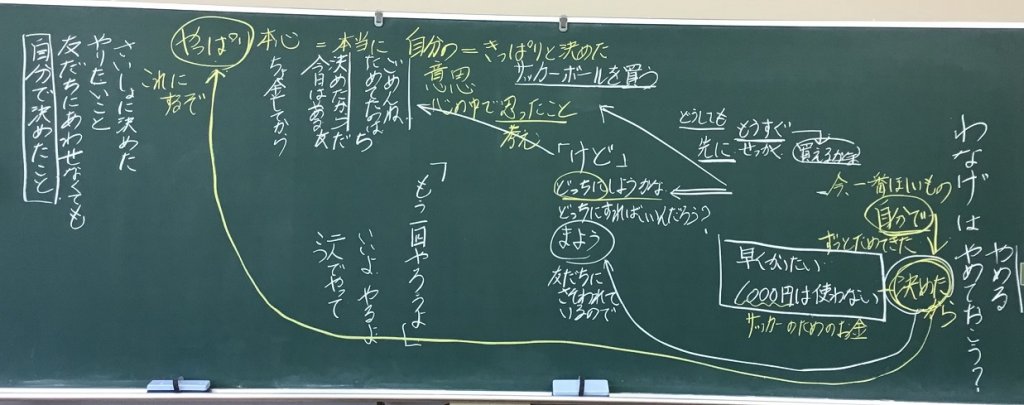 わなげはやめておこう？
やめる
今、一番ほしいもの
自分で
ずっとためてきた
決めた
から
早くかいたい
6000円は使わない
サッカーのためのお金
どうしても
先に
もうすぐ
せっかく
買えるお金
「けど」
どっちにしようかな
どっちにすればいいんだろう？
まよう
友だちに
さそわれて
いるので
自分の
意思
＝きっぱりと決めた
サッカーボールを買う
心の中で思ったこと
考え
「もう一回やろうよ」
いいよ やるよ
二人でやって
ごめんね、
だめてたから
決めたことだ
今日はあるよ
＝本当に
本心
ちょ金してから
やっぱり
これに
するぞ
さいしょに決めた
やりたいこと
友だちにあわせなくても
自分で決めたこと